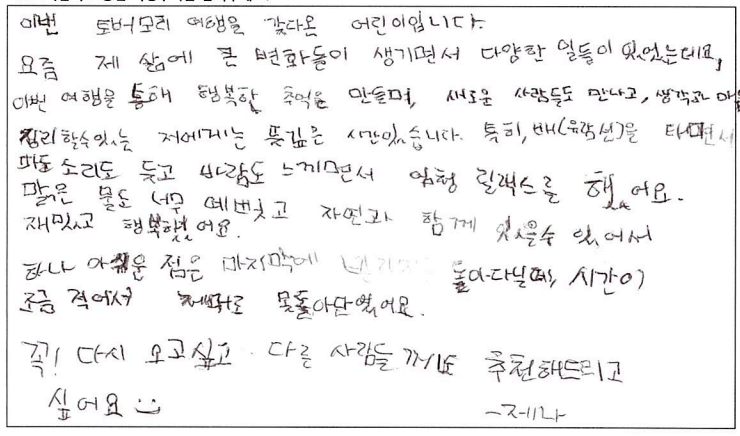 이번 토버모리 여행을 갔다온 어린이입니다.
요즘 제 삶에 큰 변화들이 생기면서 다양한 일들이 있었는데요,
이번 여행을 통해 행복한 추억을 만들며, 새로운 사람들도 만나고, 생각과 마음
정리 할수있는 저에게는 뜻깊은 시간있습니다. 특히, 배(유람선)을 타면서
파도 소리도 듣고 바람도 느끼면서 엄청 릴랙스를 했어요.
맑은 물도 너무 예뻤고 자연과 함께 있을수 있어서
재밌고 행복했어요.
하나 아쉬운 점은 마지막에 돌아다닐때, 시간이
조금 적어서 제대로 못돌아단였어요.
꼭! 다시 오고싶고 다른 사람들 께도 추천해드리고
싶어요
-제나